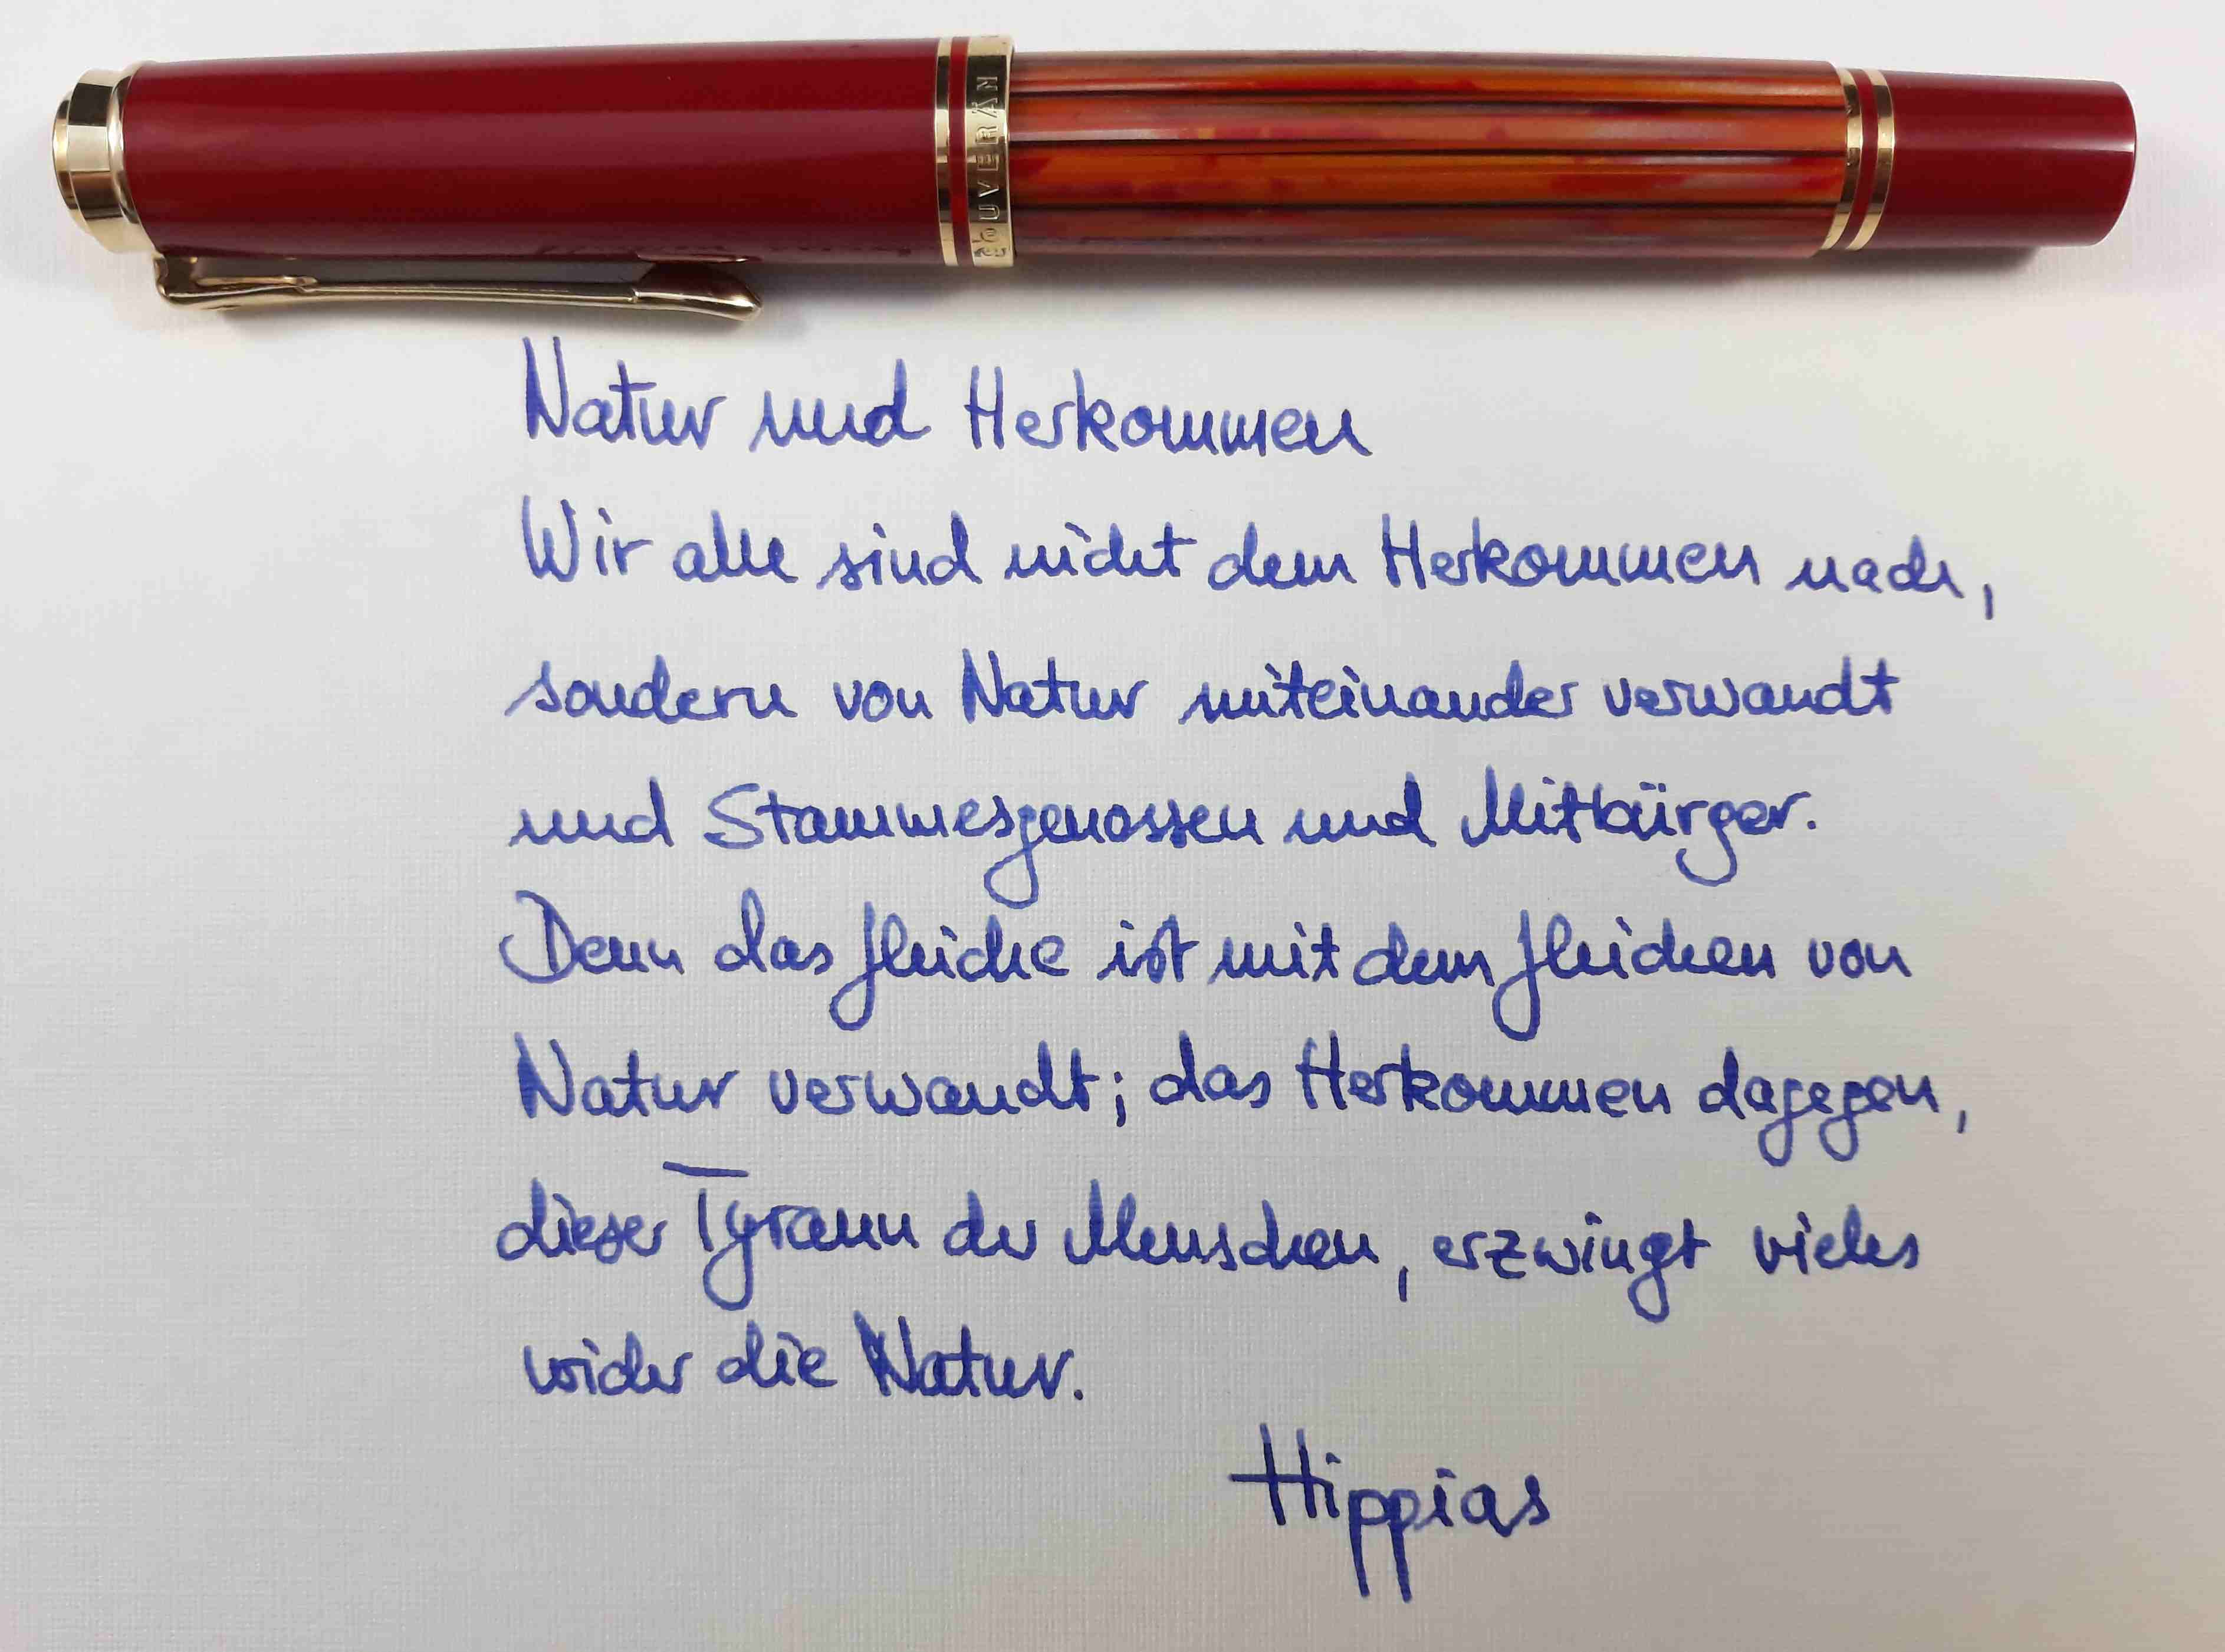 SOUVERÄN
Natur und Herkommen
Wir alle sind nicht dem Herkommen nach,
sondern von Natur miteinander verwandt
und Stammesgenossen und Mitbürger.
Denn das Gleiche ist mit dem Gleichen von
Natur verwandt; das Herkommen dagegen,
dieser Tyrann der Menschen, erzwingt vieles
wider die Natur.
Hippias